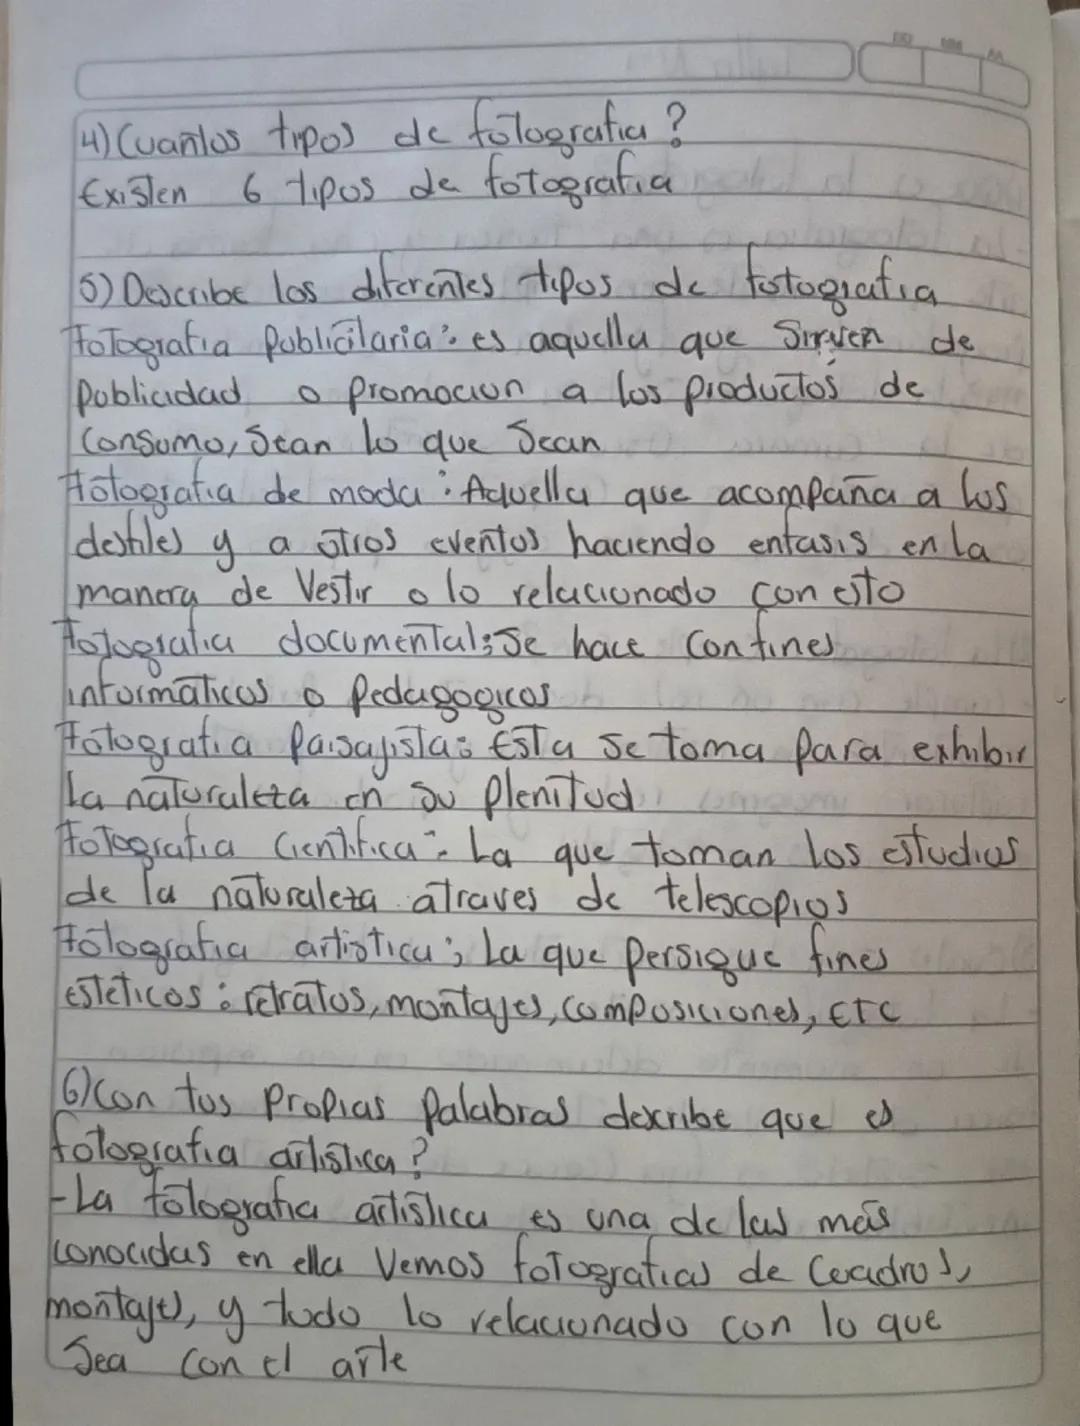 DD MM AA
4) Cuantos tipos de fotografia?
Existen 6 tipos de fotografia
5) Describe los diferentes tipos de fotografia
Fotografia Publicitaria: es aquella que Sirven de
Publicidad o promocion a los productos de
Consumo, Sean lo que Sean
Fotografia de moda: Aquella que acompaña a los
desfiles y a otros eventos haciendo enfasis en la
manera de Vestir o lo relacionado con esto
Fotografia documental: Se hace Con fines
informaticos o Pedagogicos
Fotografia Paisajista: Esta se toma para exhibir
La naturaleza en su Plenitud
Fotografia Cientifica: La que toman los estudios
de la naturaleza atraves de telescopios
Fotografia artistica; La que Persigue fines
esteticos: retratos, montajes, composiciones, ETC
6) Con tus Propias Palabras describe que es
fotografia artistica?
- La fotografia artistica es una de las más
conocidas en ella Vemos fotografias de Cuadros,
montajes, y todo lo relacionado con lo que
Sea con el arte